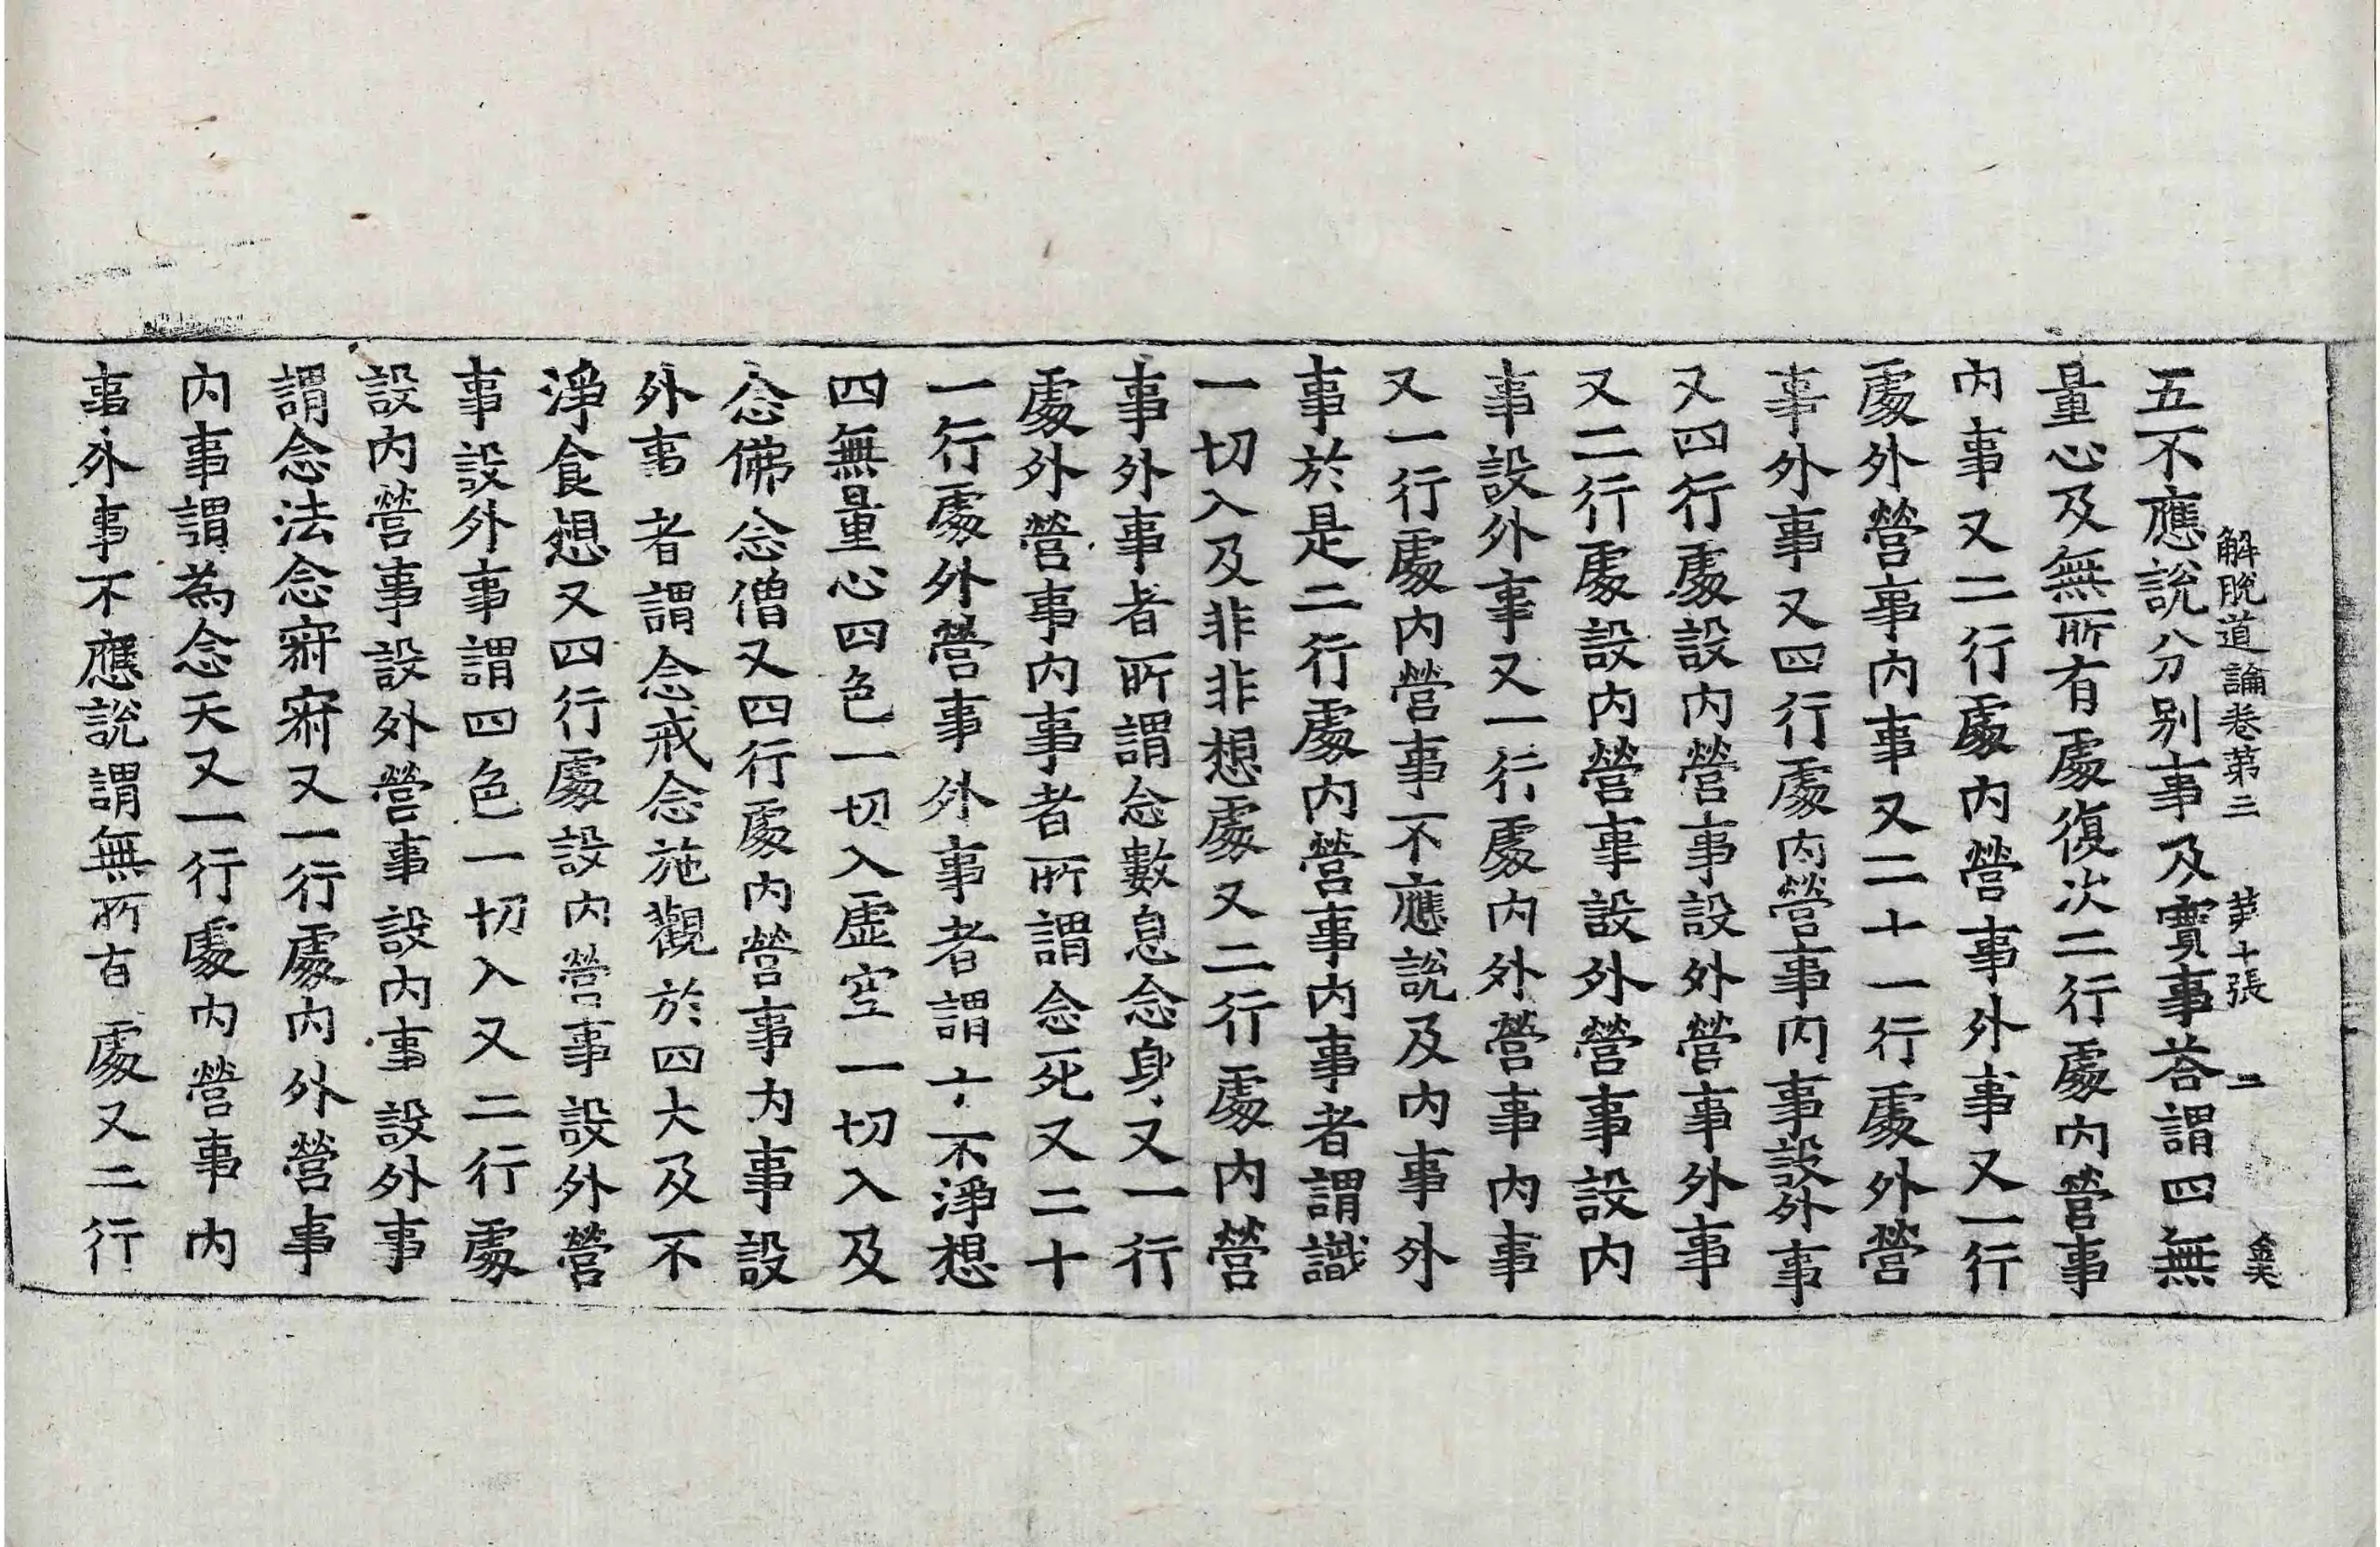 解脫道論卷第三 第十張 二
五不應說分別事及實事荅謂四無
量心及無所有處復次二行處內營事
內事又二行處內營事外事又一行
處外營事內事又二十一行處外營
事外事又四行處內營事內事設外事
又四行處設內營事設外營事外事
又二行處設內營事設外營事設內
事設外事又一行處內外營事內事
又一行處內營事不應說及內事外
事於是二行處內營事內事者謂識
一切入及非非想處又二行處內營
事外事者所謂念數息念身又一行
處外營事內事者所謂念死又二十
一行處外營事外事者謂十不淨想
四無量心四色一切入虛空一切入及
念佛念僧又四行處內營事內事設
外事者謂念戒念施觀於四大及不
淨食想又四行處設內營事設外營
事設外事謂四色一切入又二行處
設內營事設外營事設內事設外事
謂念法念寂寂又一行處內外營事
內事謂為念天又一行處內營事內
事外事不應說謂無所有處又二行